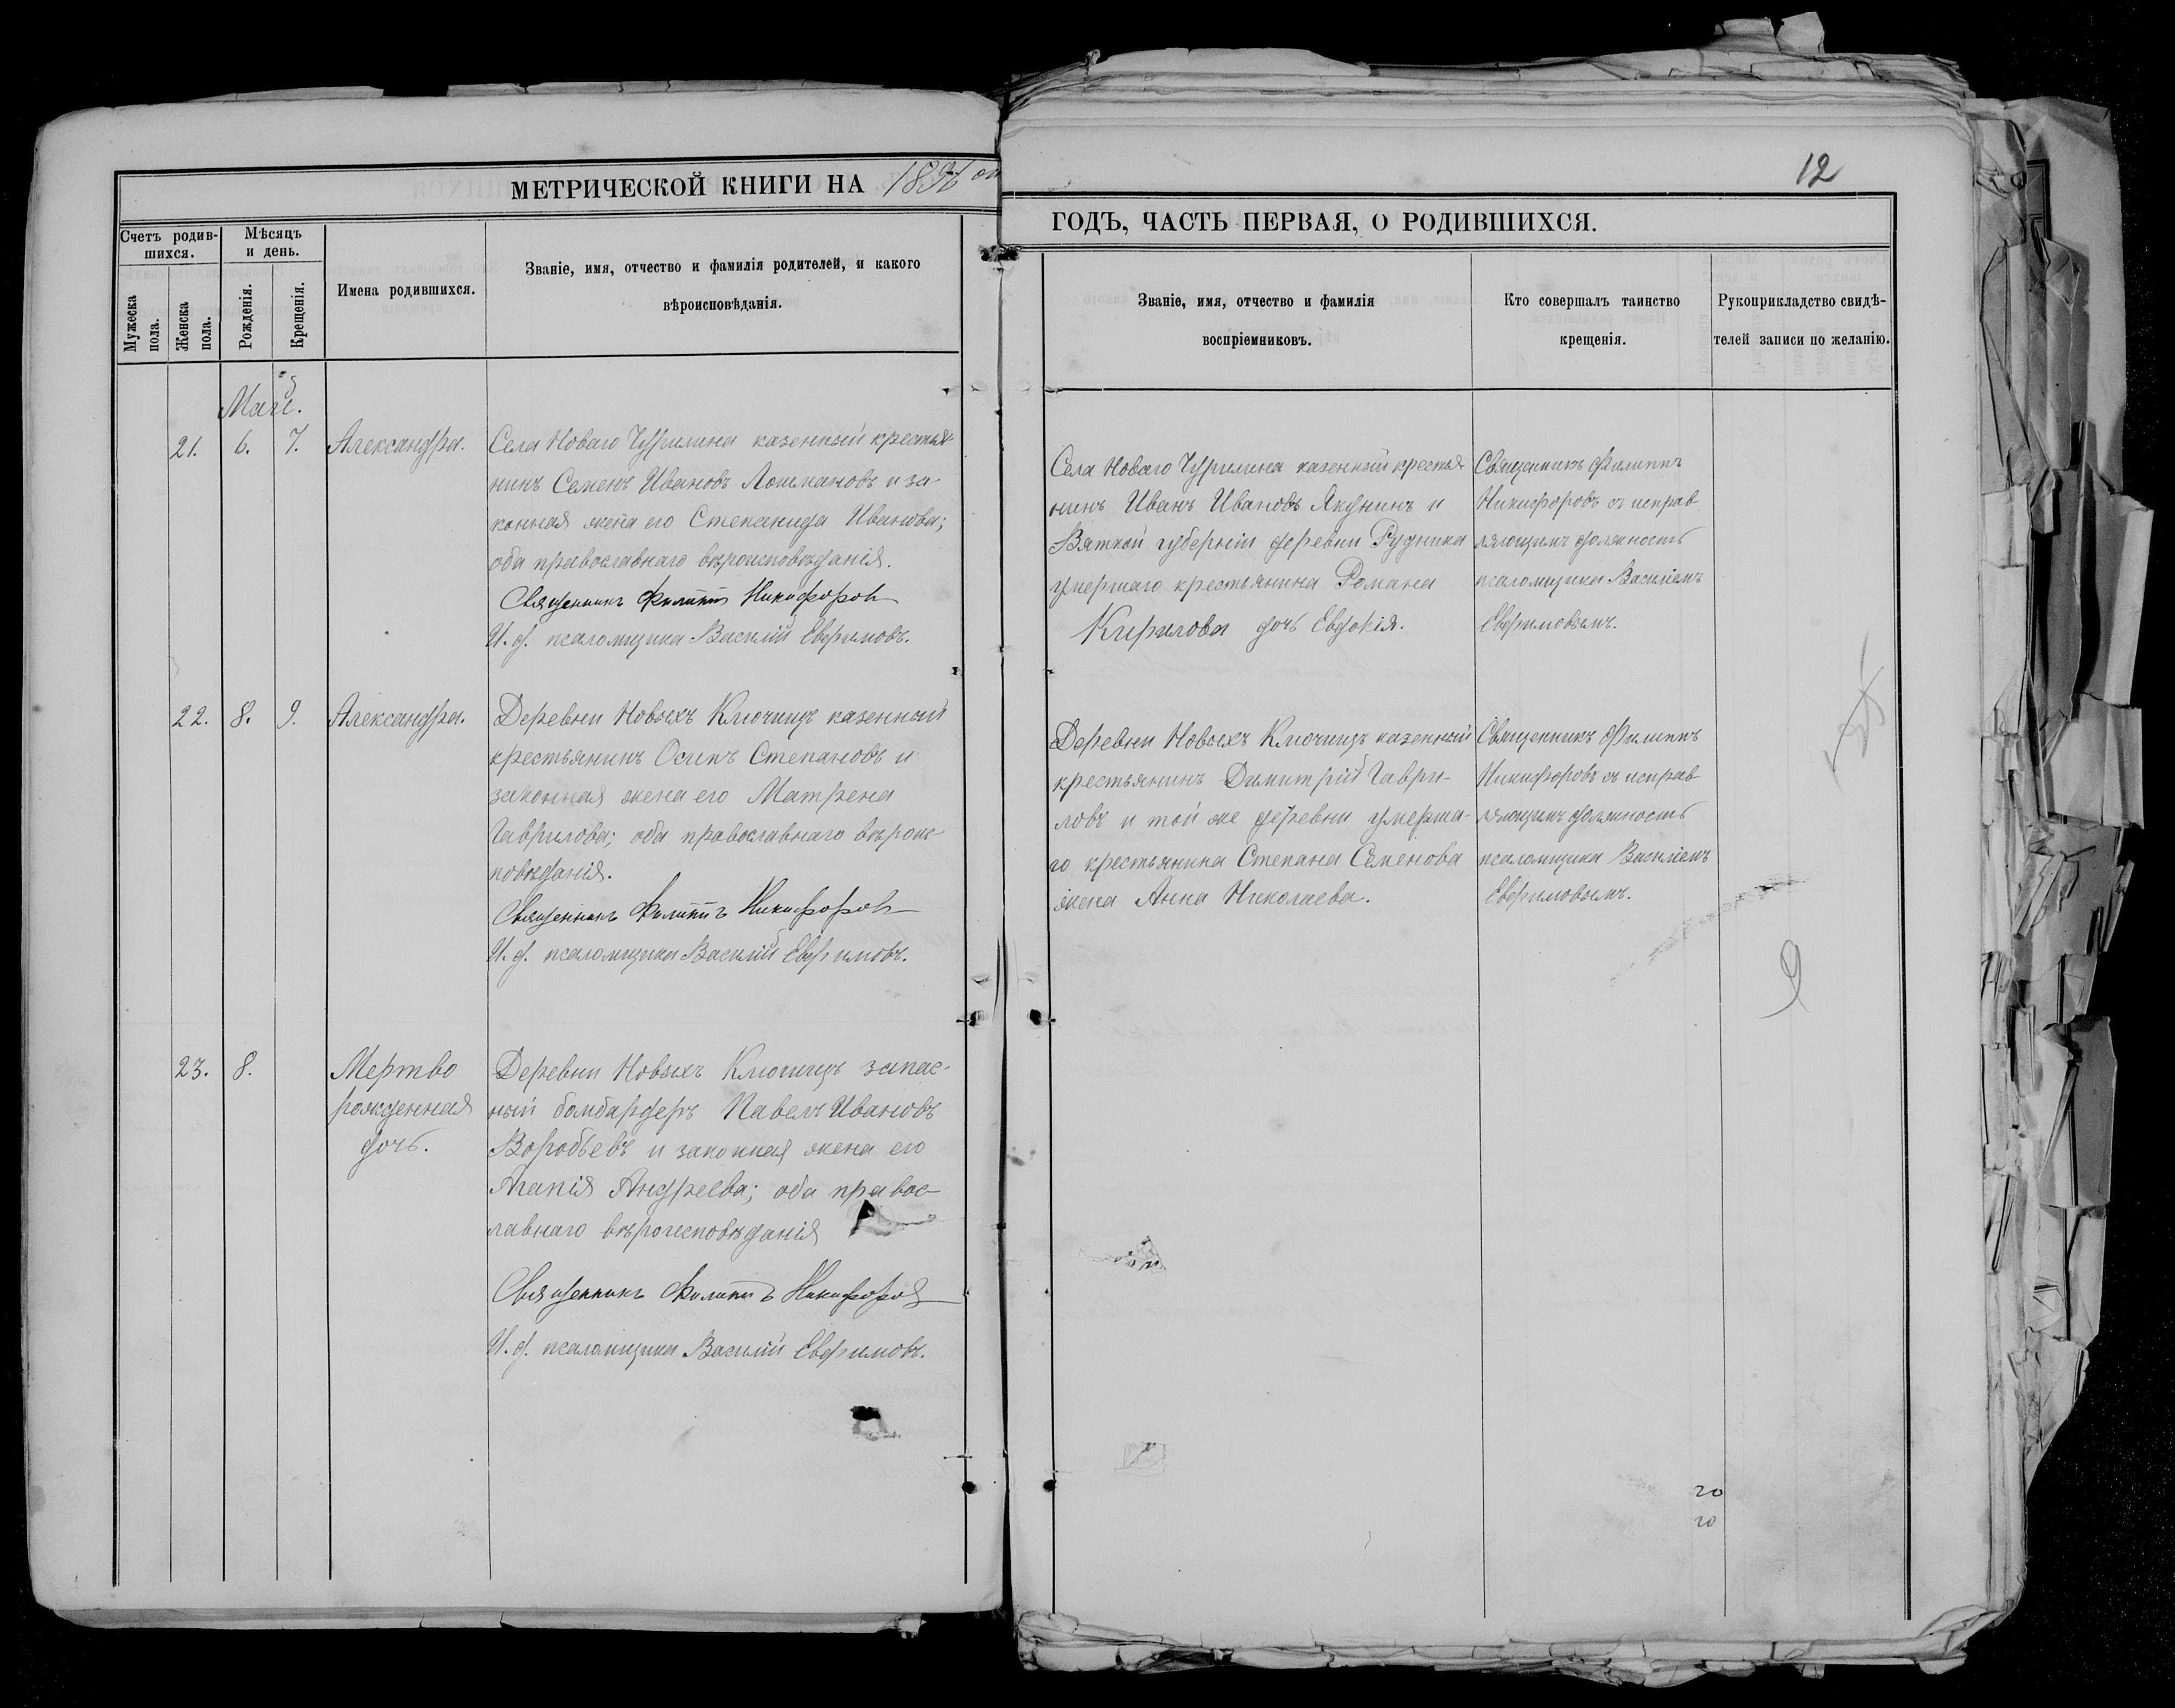 МЕТРИЧЕСКОЙ КНИГИ НА 1896 ой
Счетъ родив-
шихся.
Мѣсяцъ
и день.
Мужеска
пола.
Женска
пола.
Рожденія.
Крещенія.
Имена родившихся.
Званіе, имя, отчество и фамилія родителей, и какого
вѣроисповѣданія.
Май.
21. 6. 7. Александра.
Села Новаго Чурилина казенный крестья-
нинъ Семенъ Ивановъ Лошмановъ и за-
конная жена его Степанида Иванова;
оба православнаго вѣроисповѣданія.
Священникъ Филиппъ Никифоровъ
И. д. псаломщика Василій Евфимовъ.
22. 8. 9. Александра.
Деревни Новыхъ Ключищъ казенный
крестьянинъ Осипъ Степановъ и
законная жена его Матрена
Гаврилова; оба православнаго вѣроис-
повѣданія.
Священникъ Филиппъ Никифоровъ
И. д. псаломщика Василій Евфимовъ.
23. 8. Мертво
рожденная
дочь.
Деревни Новыхъ Ключищъ запас-
ный бомбардеръ Павелъ Ивановъ
Воробьевъ и законная жена его
Агапія Андреева; оба правос-
лавнаго вѣроисповѣданія
Священникъ Филиппъ Никифоровъ
И. д. псаломщика Василій Евфимовъ.
12
ГОДЪ, ЧАСТЬ ПЕРВАЯ, О РОДИВШИХСЯ.
Званіе, имя, отчество и фамилія
воспріемниковъ.
Кто совершалъ таинство
крещенія.
Рукоприкладство свидѣ-
телей записи по желанію.
Села Новаго Чурилина казенный крестья-
нинъ Иванъ Ивановъ Якунинъ и
Вятской губерніи деревни Рудника
умершаго крестьянина Романа
Кирилова дочь Евдокія.
Священникъ Филиппъ
Никифоровъ съ исправ
ляющимъ должность
псаломщика Василіемъ
Евфимовымъ.
Деревни Новыхъ Ключищъ казенный
крестьянинъ Димитрій Гаври-
ловъ и той же деревни умерша-
го крестьянина Степана Семенова
жена Анна Николаева.
Священникъ Филиппъ
Никифоровъ съ исправ
ляющимъ должность
псаломщика Василіемъ
Евфимовымъ.
9
20
20